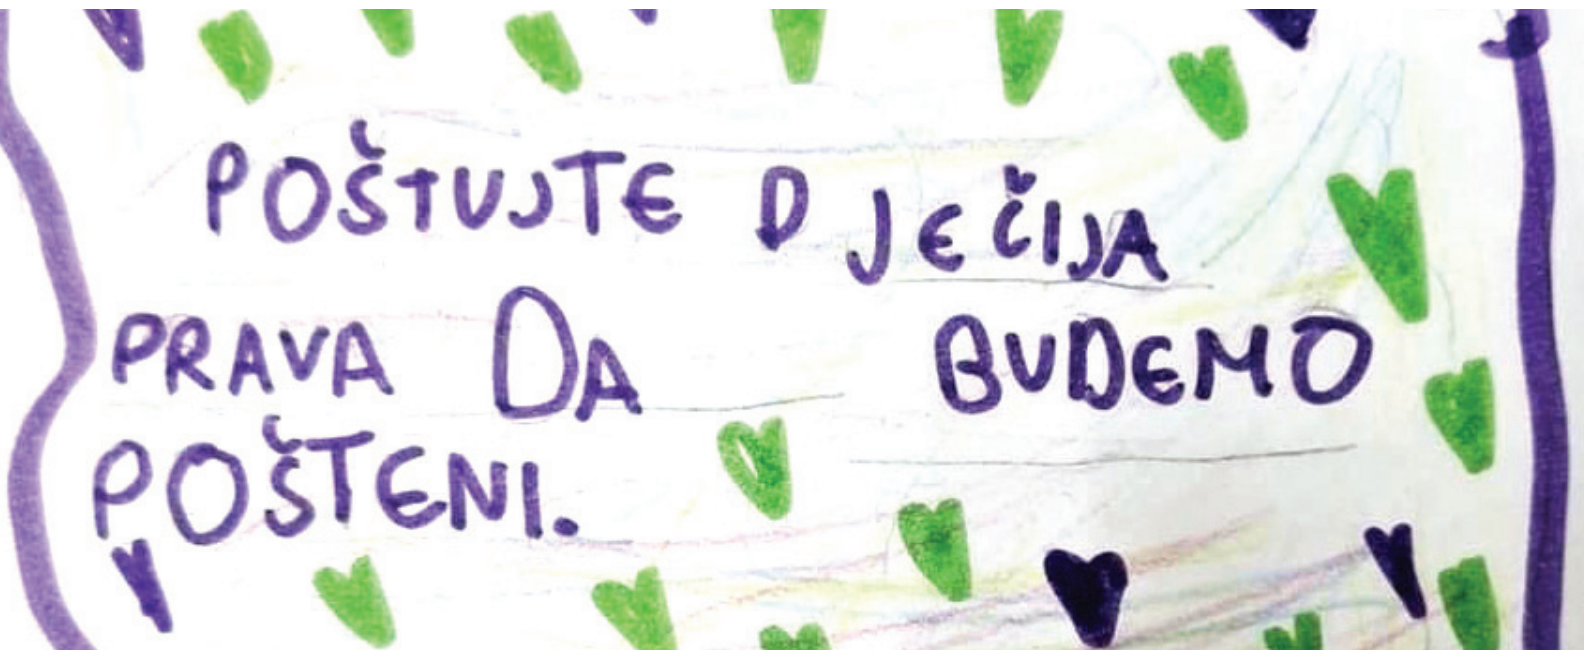 POŠTUJTE DJEČIJA
PRAVA DA BUDEMO
POŠTENI.